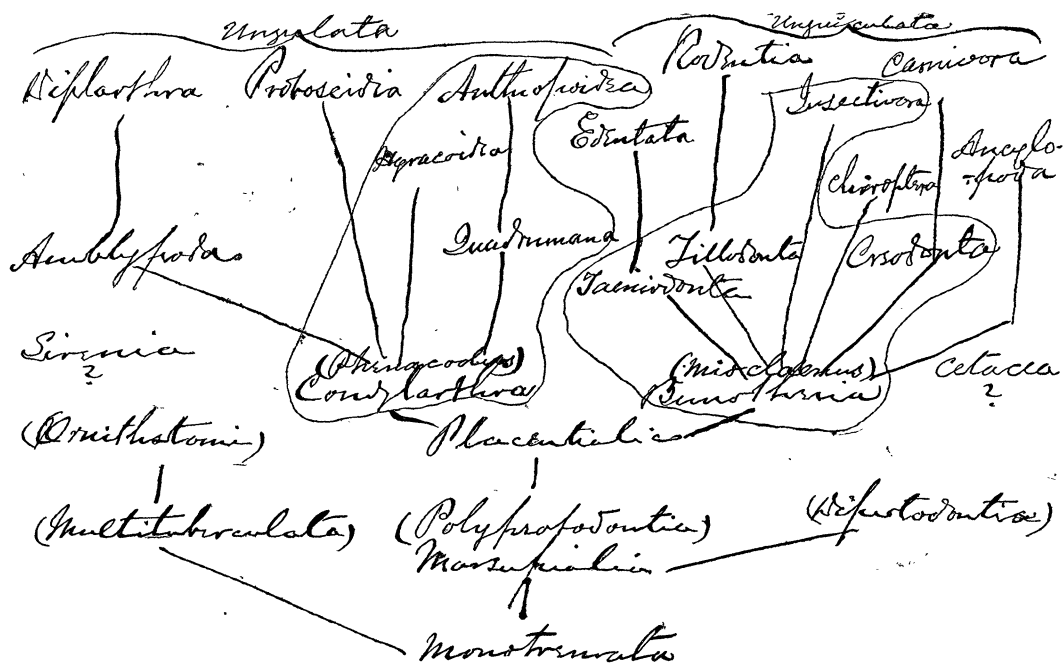 Ungulata
Unguiculata
Diplarthra
Proboscidia
Anthropoidea
Rodentia
Carnivora
Hyracoidea
Edentata
Insectivora
Chiroptera
Ancylo-
-poda
Amblypoda
Quadrumana
Tillodonta
Creodonta
Taeniodonta
Sirenia
?
(Phenacodus)
Condylarthra
(Mioclaenus)
Bunotheria
Cetacea
?
(Ornithostomi)
Placentialia
(Multituberculata)
(Polyprotodontia)
Marsupialia
(Diprotodontia)
Monotremata